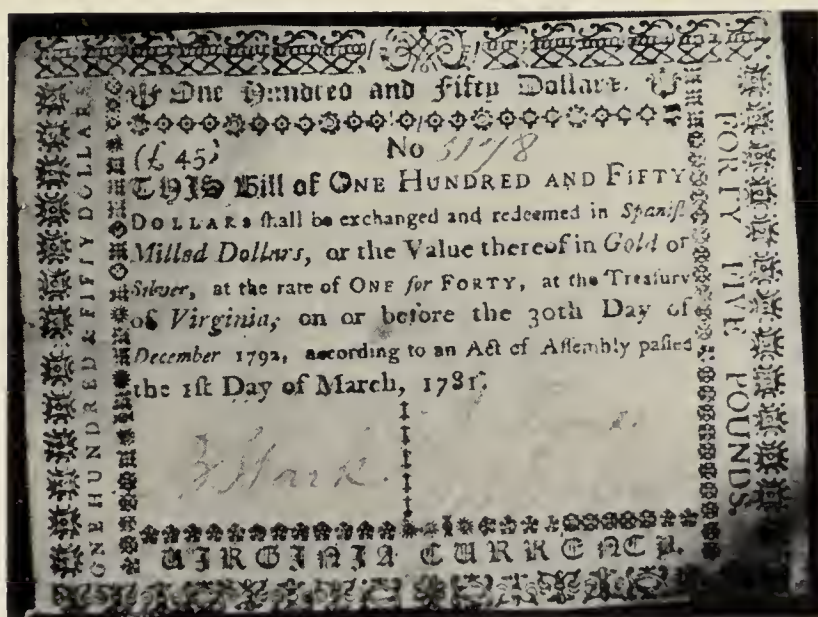 One Hundred and Fifty Dollars.
(£ 45)
No
THIS Bill of ONE HUNDRED AND FIFTY
DOLLARS ſhall be exchanged and redeemed in Spaniſh
Milled Dollars, or the Value thereof in Gold or
Silver, at the rate of ONE for FORTY, at the Treaſury
of Virginia, on or before the 30th Day of
December 1792, according to an Act of Aſſembly paſſed
the 1ſt Day of March, 1781.
VIRGINIA CURRENCY.
ONE HUNDRED & FIFTY DOLLARS
FORTY FIVE POUNDS.